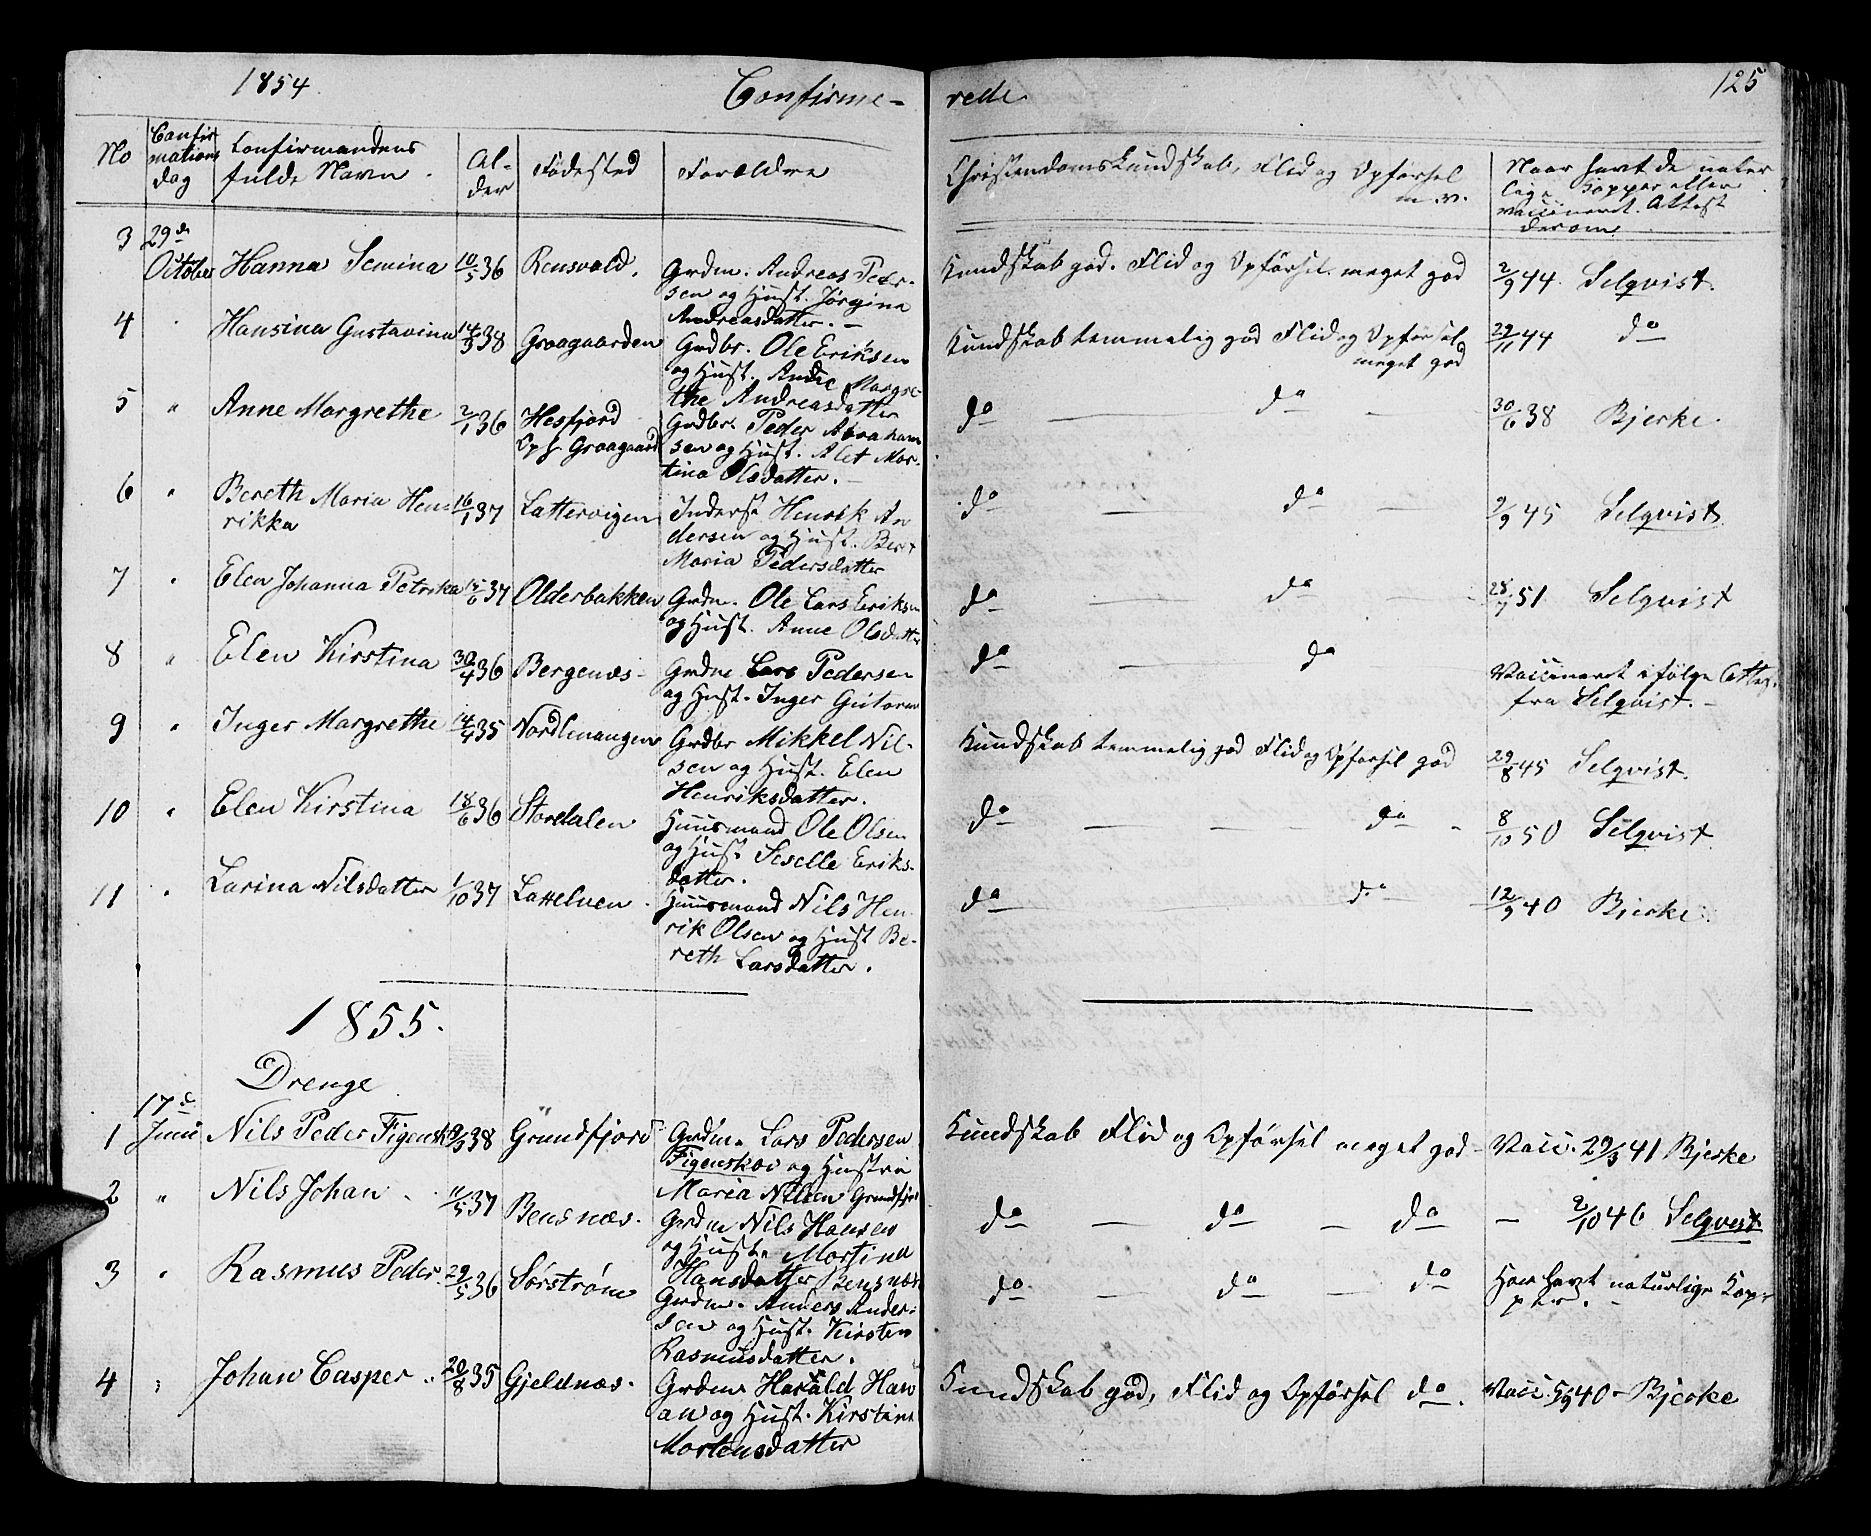 1854. Confirme- rede 125
No Confirmations dag Confirmandens fulde Navn. Alder Fødested Forældre Christendomskundskab, Flid og Opførsel m.v. Naar havt de naturlige Kopper eller vaccineret. Attest derom
3 29de October Hanna Semina 10/5 36 Rensvold. Grdm. Andreas Peder-
sen og Hust. Jørgina
Andreasdatter. -
Kundskab god. Flid og Opførsel meget god 2/9 44. Selqvist.
4 Hansina Gustavina 14/3 38 Graagaarden Grdbr. Ole Eriksen
og Hust. Margre-
the Andreasdatter
Kundskab temmelig god Flid og Opførsel
meget god 29/11 44 do
5 " Anne Margrethe 2/1 36 Hesfjord
Oph. Graagaard Grdbr. Peder Abraham
sen og Hust. Alet Mar-
tina Olsdatter. -
do - do - 30/6 38 Bjerke.
6 " Bereth Maria Hen-
rikka 16/1 37 Lattervigen Inderst Henrik An
dersen og Hust. Beret
Maria Pedersdatter
do - do - 9/9 45 Selqvist.
7 " Elen Johanna Petrika 15/6 37 Olderbakken Grdm. Ole Lars Eriksen
og Hust. Anne Olsdatter
do - do - 28/7 51. Selqvist
8 " Elen Kirstina 30/4 36 Bergenæs- Grdm Lars Pedersen
og Hust. Inger Gutorm
do - do Vaccineret ifølge Attest.
fra Selqvist. -
9 " Inger Margrethe 14/4 35 Nordlenangen Grdbr Mikkel Nil-
sen og Hust. Elen
Henriksdatter.
Kundskab temmelig god Flid og Opførsel god 29/8 45 Selqvist.
10 " Elen Kirstina 18/6 36 Stordalen Huusmand Ole Olsen
og Hust. Seselle Eriks-
datter.
do - - do - 8/10 50 Selqvist.
11 " Larina Nilsdatter 1/10 37 Lattelven. Huusmand Nils Hen
rik Olsen og Hust Be-
reth Larsdatter.
do - do - 12/9 40 Bjerke.
1855.
Drenge
1 17de Juni Nils Peder Figensk 9/3 38 Grundfjord Grdm. Lars Pedersen
Figenskov og Hustru
Maria Nilsen Grundfjord
Kundskab Flid og Opførsel meget god - Vacc. 29/3 41 Bjerke
2 " Nils Johan. 11/5 37 Bensnæs. Grdm Nils Hansen
og Hust. Martina
Hansdatter Bensnæs
do - do - do - 2/10 46 Selqvist
3 " Rasmus Peder 29/5 36 Sørstrøm Grdm. Anders Ander-
sen og Hust. Kirsten
Rasmusdatter.
do. - do - do Har havt naturlige Kop-
per. -
4 " Johan Casper. 20/8 35 Gjeldnæs. Grdm Harald Han
og Hust. Kirstine
Mortensdatter
Kundskab god, Flid og Opførsel do. Vacc. 5/9 40 - Bjerke